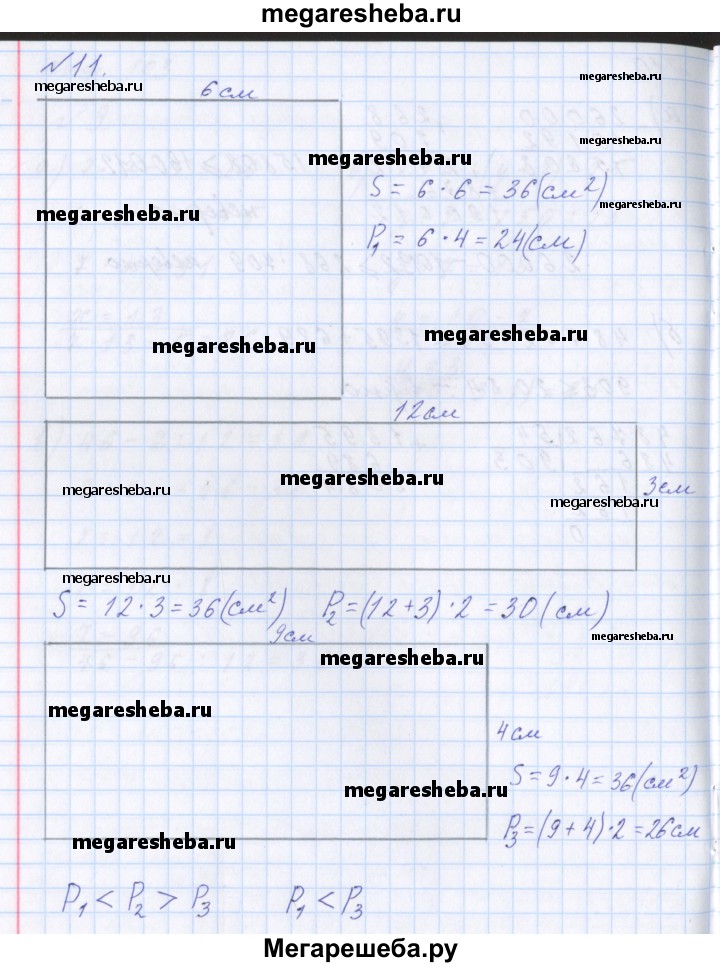 megaresheba.ru
№11.
megaresheba.ru
6 см
megaresheba.ru
megaresheba.ru
S = 6 · 6 = 36(см²)
megaresheba.ru
megaresheba.ru
P₁ = 6 · 4 = 24(см)
megaresheba.ru
megaresheba.ru
12см
megaresheba.ru
megaresheba.ru
3см
megaresheba.ru
megaresheba.ru
S = 12 · 3 = 36(см²) P₂ = (12 + 3) · 2 = 30 (см)
9см
megaresheba.ru
megaresheba.ru
megaresheba.ru
4см
S = 9 · 4 = 36(см²)
megaresheba.ru
P₃ = (9 + 4) · 2 = 26см
megaresheba.ru
P₁ < P₂ > P₃ P₁ < P₃
Мегарешеба.ру